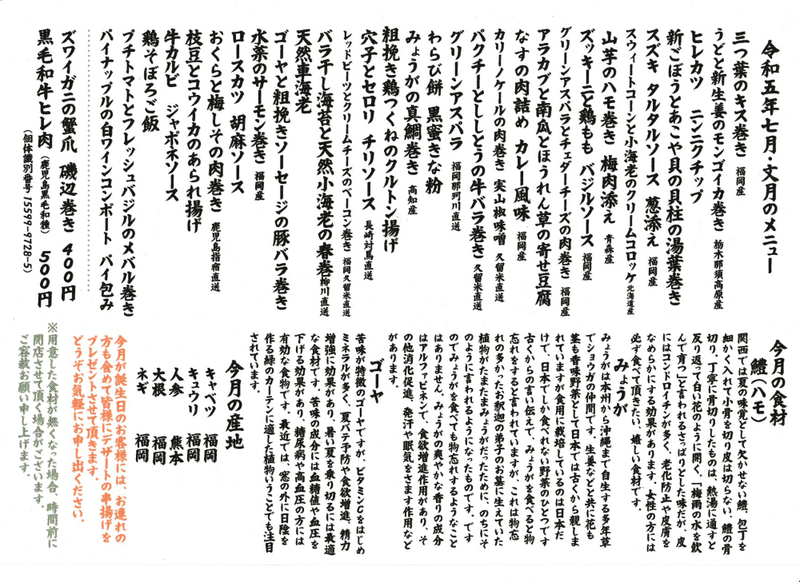 令和五年七月・文月のメニュー
三つ葉のキス巻き 福岡産
うどと新生姜のモンゴイカ巻き 栃木那須高原産
ヒレカツ ニンニクチップ
新ごぼうとあこや貝の貝柱の湯葉巻き
スズキ タルタルソース 葱添え 福岡産
スウィートコーンと小海老のクリームコロッケ 北海道産
山芋のハモ巻き 梅肉添え 青森産
ズッキーニと鶏もも バジルソース 福岡産
グリーンアスパラとチェダーチーズの肉巻き 福岡産
アラカブと南瓜とほうれん草の寄せ豆腐
なすの肉詰め カレー風味 福岡産
カリーノケールの肉巻き 実山椒味噌 久留米直送
パクチーとししとうの牛バラ巻き 久留米直送
グリーンアスパラ 福岡那珂川直送
わらび餅 黒蜜きな粉
みょうがの真鯛巻き 高知産
粗挽き鶏つくねのクルトン揚げ
穴子とセロリ チリソース 長崎対馬直送
レッドビーツとクリームチーズのベーコン巻き 福岡久留米直送
バラ干し海苔と天然小海老の春巻き 柳川直送
天然車海老
ゴーヤと粗挽きソーセージの豚バラ巻き
水菜のサーモン巻き 福岡産
ロースカツ 胡麻ソース
おくらと梅しその肉巻き 鹿児島指宿直送
枝豆とコウイカのあられ揚げ
牛カルビ ジャポネソース
鶏そぼろご飯
プチトマトとフレッシュバジルのメバル巻き
パイナップルの白ワインコンポート パイ包み
ズワイガニの蟹爪 磯辺巻き 400円
黒毛和牛ヒレ肉 (鹿児島黒毛和種) 500円
(個体識別番号 15599-9728-5)
今月の食材
鱧(ハモ)
関西では夏の味覚として欠かせない鱧。包丁を
細かく入れて小骨を切り皮は切らない、鱧の骨
切り。丁寧に骨切りしたものは、熱湯に通すと
反り返って白い花のように開く。「梅雨の水を飲
んで育つ」と言われるさっぱりとした味だが、皮
にはコンドロイチンが多く、老化防止や皮膚を
なめらかにする効果があります。女性の方には
必ず食べて頂きたい、嬉しい食材です。
みょうが
みょうがは本州から沖縄まで自生する多年草
でショウガの仲間です。生姜などと共に花も
茎も香味野菜として日本では古くから親しま
れていますが食用に栽培しているのは日本だ
けで、日本でしか食べられない野菜のひとつです。
古くからの言い伝えで、みょうがを食べると物
忘れをすると言われていますが、これは物忘
れの多かったお釈迦の弟子のお墓に生えていた
植物がたまたまみょうがだったために、のちにそ
のように言われるようになったものです。です
のでみょうがを食べても物忘れするようなこと
はありません。みょうがの爽やかな香りの成分
はアルファピネンで、食欲増進作用があり、そ
の他消化促進、発汗や眠気をさます作用など
があります。
ゴーヤ
苦味が特徴のゴーヤですが、ビタミンCをはじめ
ミネラルが多く、夏バテ予防や食欲増進、精力
増強に効果があり、暑い夏を乗り切るには最適
な食材です。苦味の成分には血糖値や血圧を
下げる効果があり、糖尿病や高血圧の方には
有効な食物です。最近では、窓の外に日陰を
作る緑のカーテンに適した植物ということでも注目
されています。
今月の産地
キャベツ 福岡
キュウリ 福岡
人参 熊本
大根 福岡
ネギ 福岡
今月が誕生日のお客様には、お連れの
方も含めて皆様にデザートの串揚げを
プレゼントさせて頂きます。
どうぞお気軽にお申し出ください。
※用意した食材が無くなった場合、時間前に
閉店させて頂く場合がございます。
ご容赦お願い申し上げます。